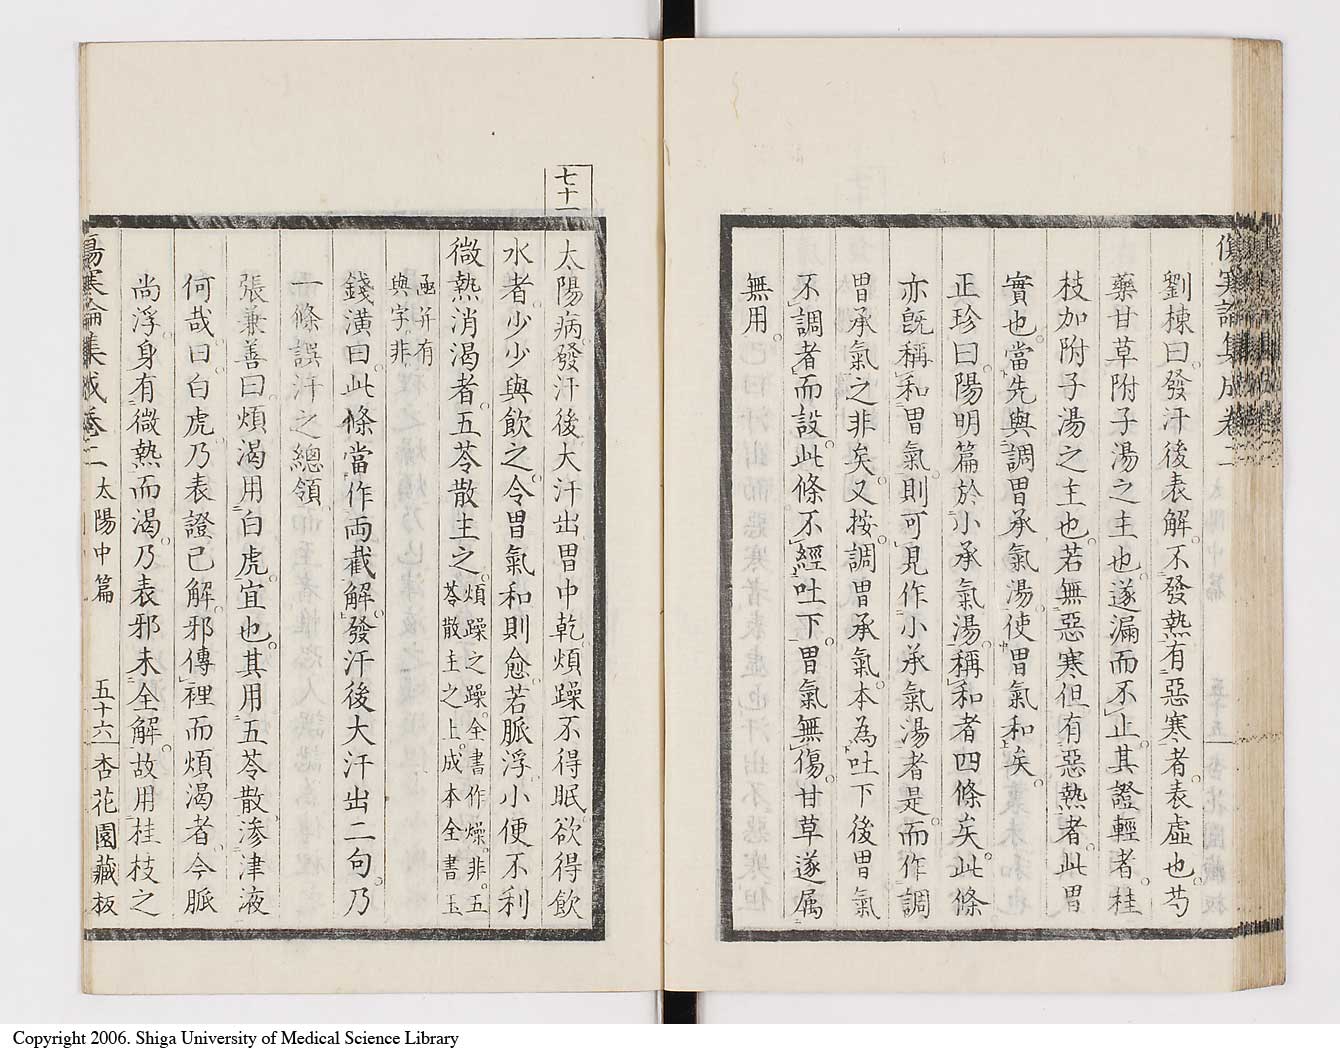 傷寒論集成卷二
劉棟曰。發汗後表解。不發熱有惡寒者。表虛也。芍
藥甘草附子湯之主也。遂漏而不止。其證輕者。桂
枝加附子湯之主也。若無惡寒但有惡熱者。此胃
實也。當先與調胃承氣湯。使胃氣和矣。
正珍曰。陽明篇於小承氣湯。稱和者四條矣。此條
亦旣稱和胃氣。則可見作小承氣湯者是。而作調
胃承氣之非矣。又按。調胃承氣。本為吐下後胃氣
不調者而設。此條不經吐下。胃氣無傷。甘草遂属
無用。
七十一
太陽病。發汗後大汗出胃中乾。煩躁不得眠。欲得飲
水者。少少與飲之。令胃氣和則愈。若脈浮。小便不利
微熱消渴者。五苓散主之。煩躁之躁。全書作燥。非。五
苓散主之上。成本全書玉
函并有
與字非
錢潢曰。此條當作兩截解。發汗後大汗出二句。乃
一條誤汗之總領。
張兼善曰。煩渴用白虎。宜也。其用五苓散滲津液
何哉。曰。白虎乃表證已解。邪傳裡而煩渴者。今脈
尚浮。身有微熱而渴。乃表邪未全解。故用桂枝之
傷寒論集成卷二 太陽中篇 五十六 杏花園藏板
Copyright 2006. Shiga University of Medical Science Library